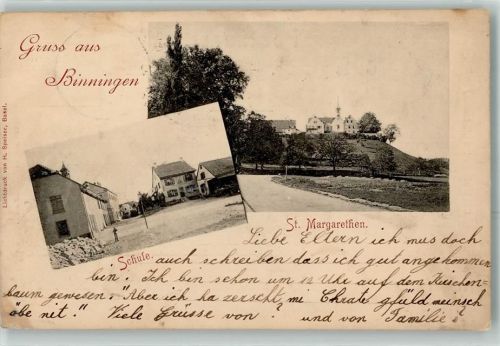 Gruss aus
Binningen
Lichtdruck von H. Speiser, Basel.
St. Margarethen.
Schule.
Liebe Eltern ich mus doch
auch schreiben dass ich gut angekommen
bin. Ich bin schon um 12 Uhr auf dem Kirschen-
baum gewesen. "Aber ich ha zerscht mi Chratte gfüld meinsch
öbe nit." Viele Grüsse von ? und von Familie ?